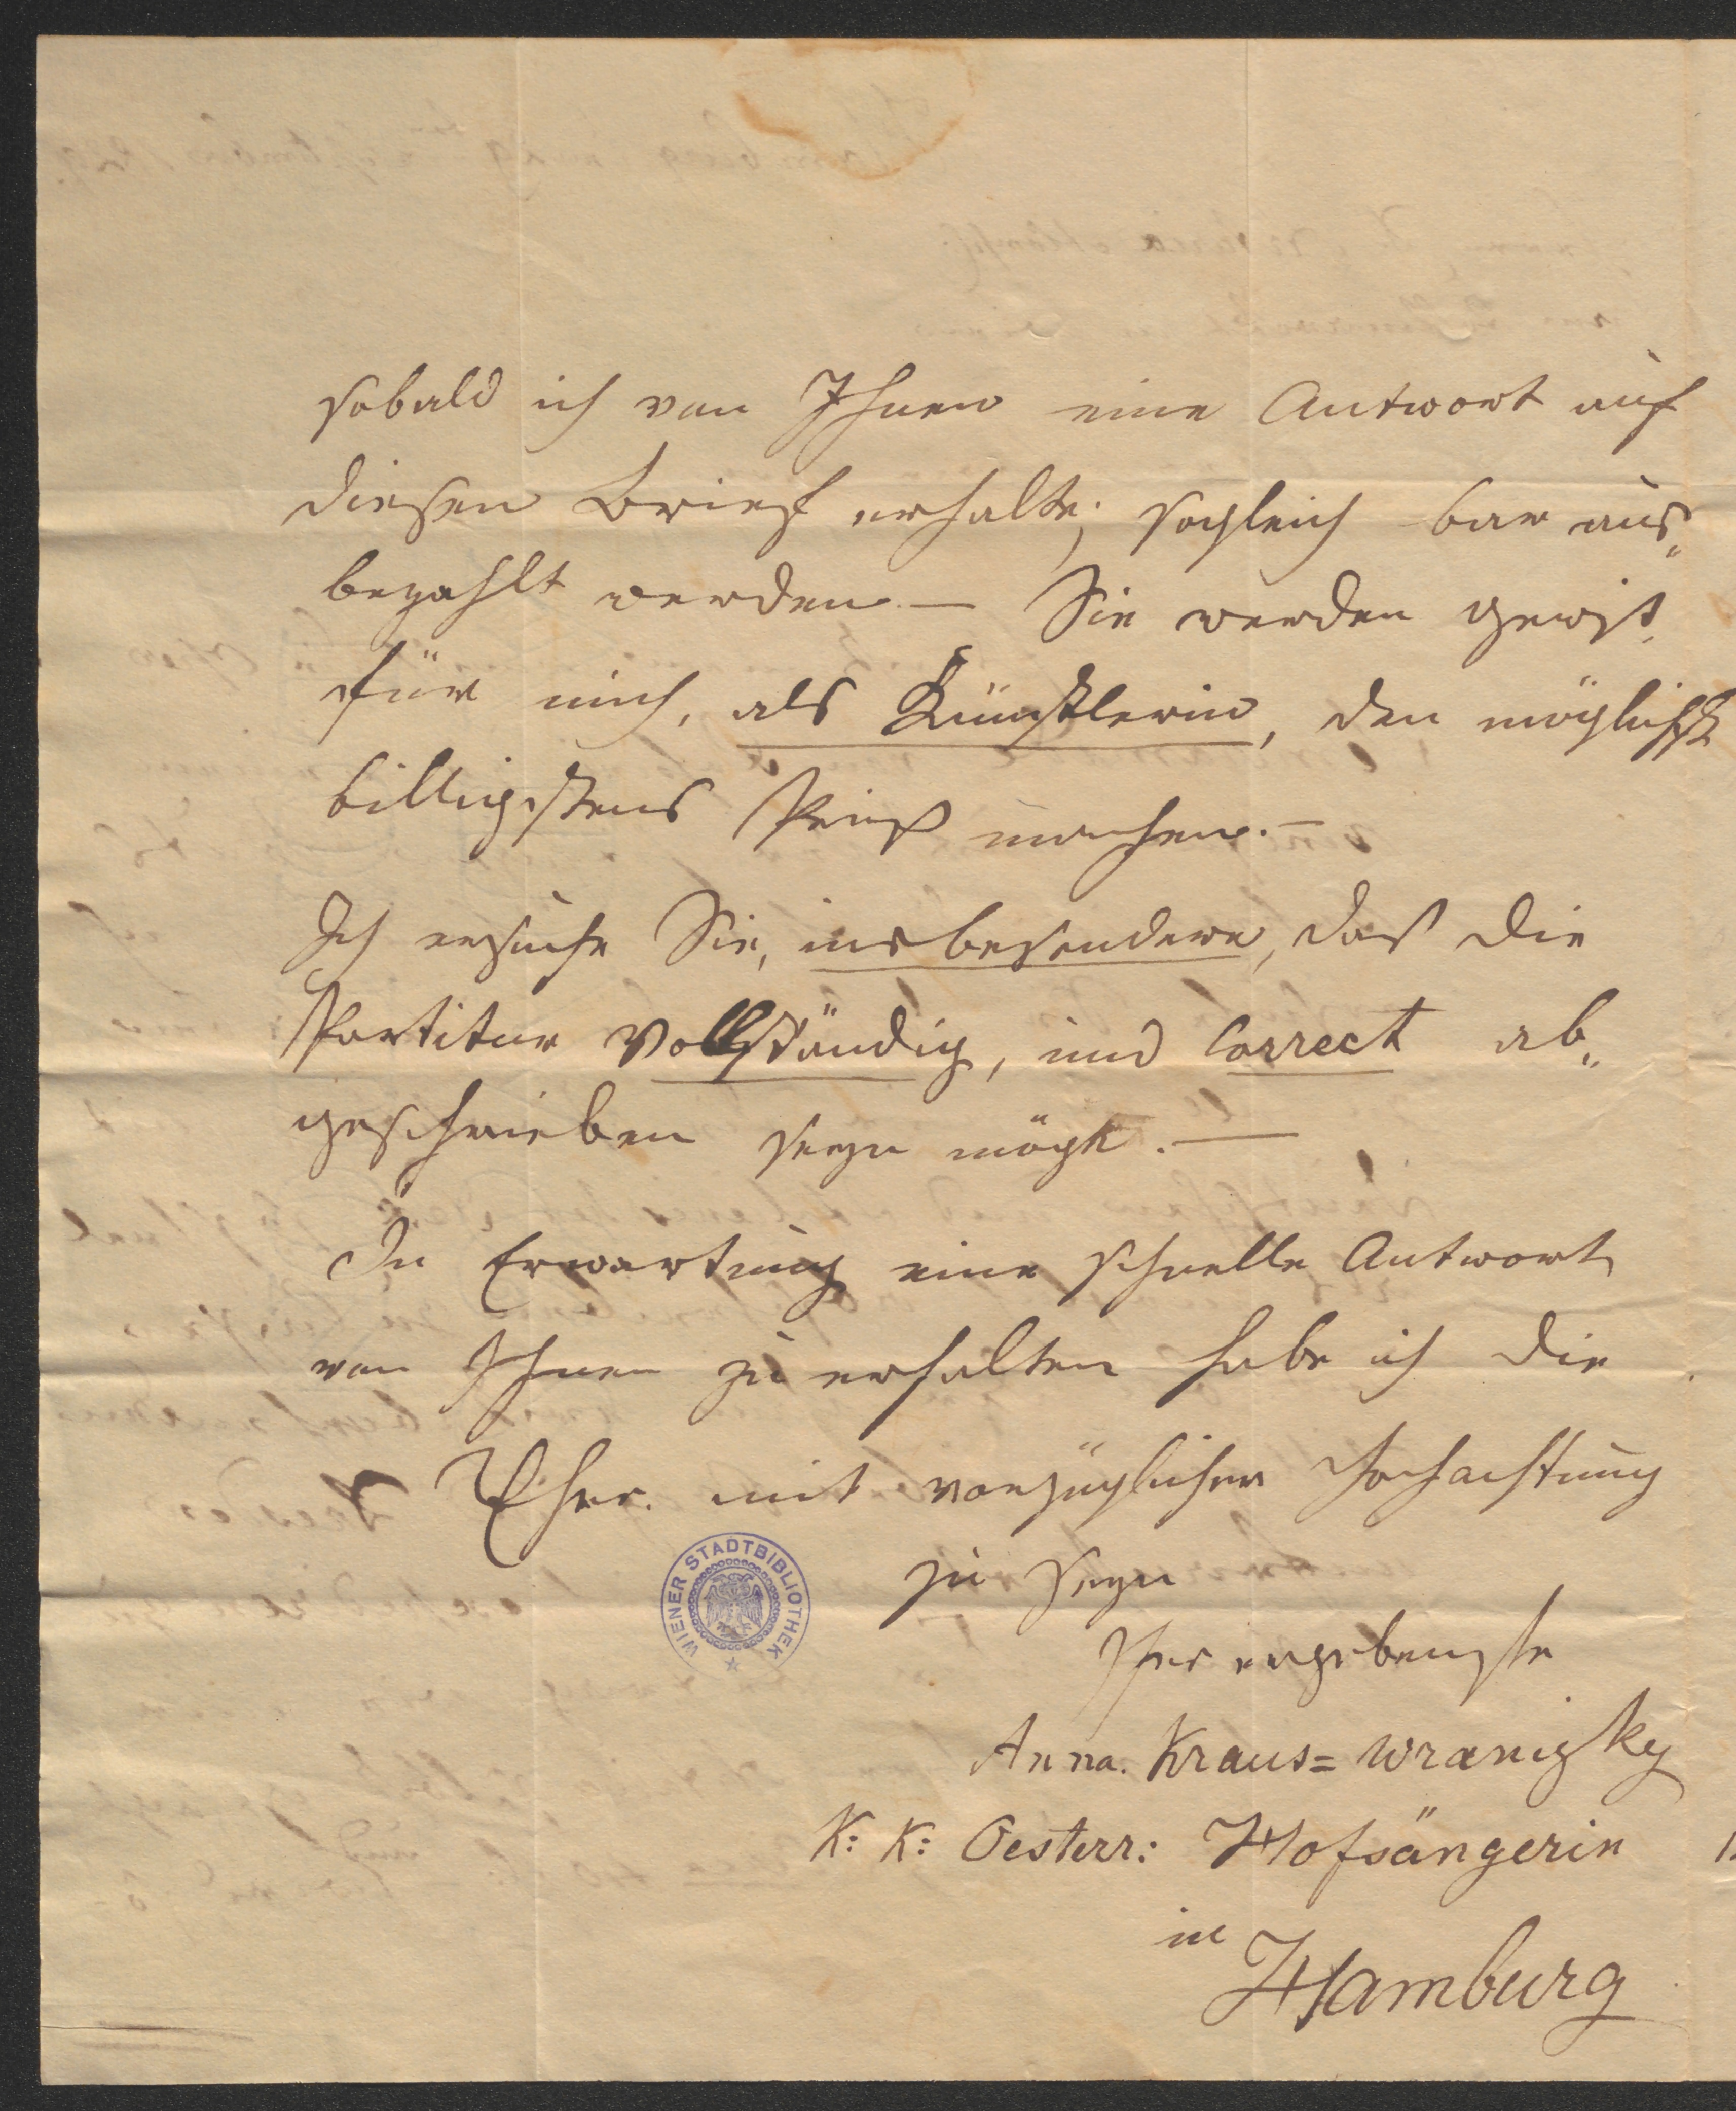 sobald ich von Ihnen eine Antwort auf
diesen Brief erhalte, sogleich bar aus„
bezahlt werden. — Sie werden gewiß
für mich, als Künstlerin, den möglichst
billigstens Preiß machen. —
Ich ersuche Sie, insbesondere, daß die
Partitur vollständig, und correct ab„
geschrieben seyn mögte. —
In Erwartung eine schnelle Antwort
von Ihnen zu erhalten habe ich die
Ehre. mit vorzüglicher Hochachtung
zu seyn
Ihre ergebenste
Anna. Kraus=Wranizky
K: K: Oesterr: Hofsängerin
in
Hamburg
WIENER STADTBIBLIOTHEK